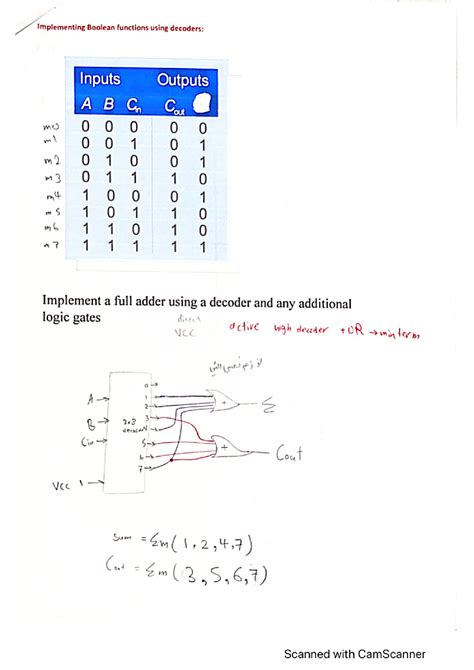 Implementing Boolean functions using decoders:
Inputs Outputs
A B Cin Cout
m0 0 0 0 0 0
m1 0 0 1 0 1
m2 0 1 0 0 1
m3 0 1 1 1 0
m4 1 0 0 0 1
m5 1 0 1 1 0
m6 1 1 0 1 0
m7 1 1 1 1 1
Implement a full adder using a decoder and any additional
logic gates
direct
VCC
active high decoder + OR → minterm
0
A
1
2
+
Σ
B
3x8
decoder
3
4
Cin
5
+
Cout
6
7
VCC 1
Sum = Σm(1,2,4,7)
Cout = Σm(3,5,6,7)
Scanned with CamScanner